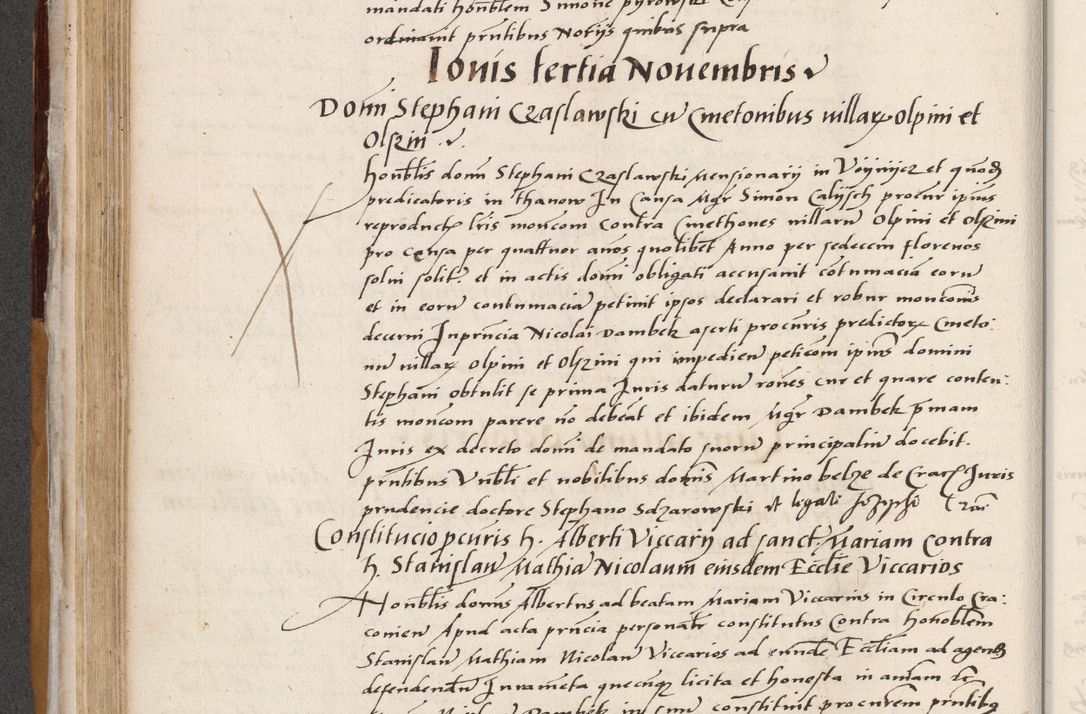 mandati honblem Simone pyrowski
ordinavit pntibus Notijs quibus supra
Iovis tertia Novembris
Domi Stephani Czaslawski cu Cmetonibus villar Olpini et
Olszin
honblis domi Stephani Czaslawski Mensionarij in Voynijcz et quod
predicatoris in thanow In Causa Mgr Simon Calijsch procur ipius
reproductis lris moncom Contra Cmethones villaru Olpini et Olszini
pro Censa per quattuor anos quolibet Anno per sedecem florenos
solvi solit. et in actis domi obligati accusavit cotumacia eoru
et in eoru contumacia petivit ipsos declarari et robur moncoms
decerni Inpncia Nicolai Dambek aserti procuris predictor Cmeto:
nu villar Olpini et Olszini qui impedien peticom ipius domini
Stephani obtulit se prima Iuris daturu rones cur et quare conten:
tis moncom parere no debeat et ibidem Mgr Dambek pmam
Iuris ex decreto domi de mandato suoru principaliu docebit.
pntibus Vnbli et nobilibus domis Martino belze de Crac Iuris
prudencie doctore Stephano Sdzarowski et
Constitucio pcuris h. Alberti Viccarij ad sanct. Mariam Contra
h. Stanislau Mathia Nicolaum eiusdem Ecclie Viccarios
Honblis domus Albertus ad beatam Mariam Viccarius in Circulo Cra:
covien Apud acta pncia personalr constitutus Contra honoblem
Stanislau Mathiam Nicolau Viccarios ad eunde Eccliam ad agend
defendendu Iurameta quecunq licita et honesta in animam
Dambek in suu constituit procurem pntibq